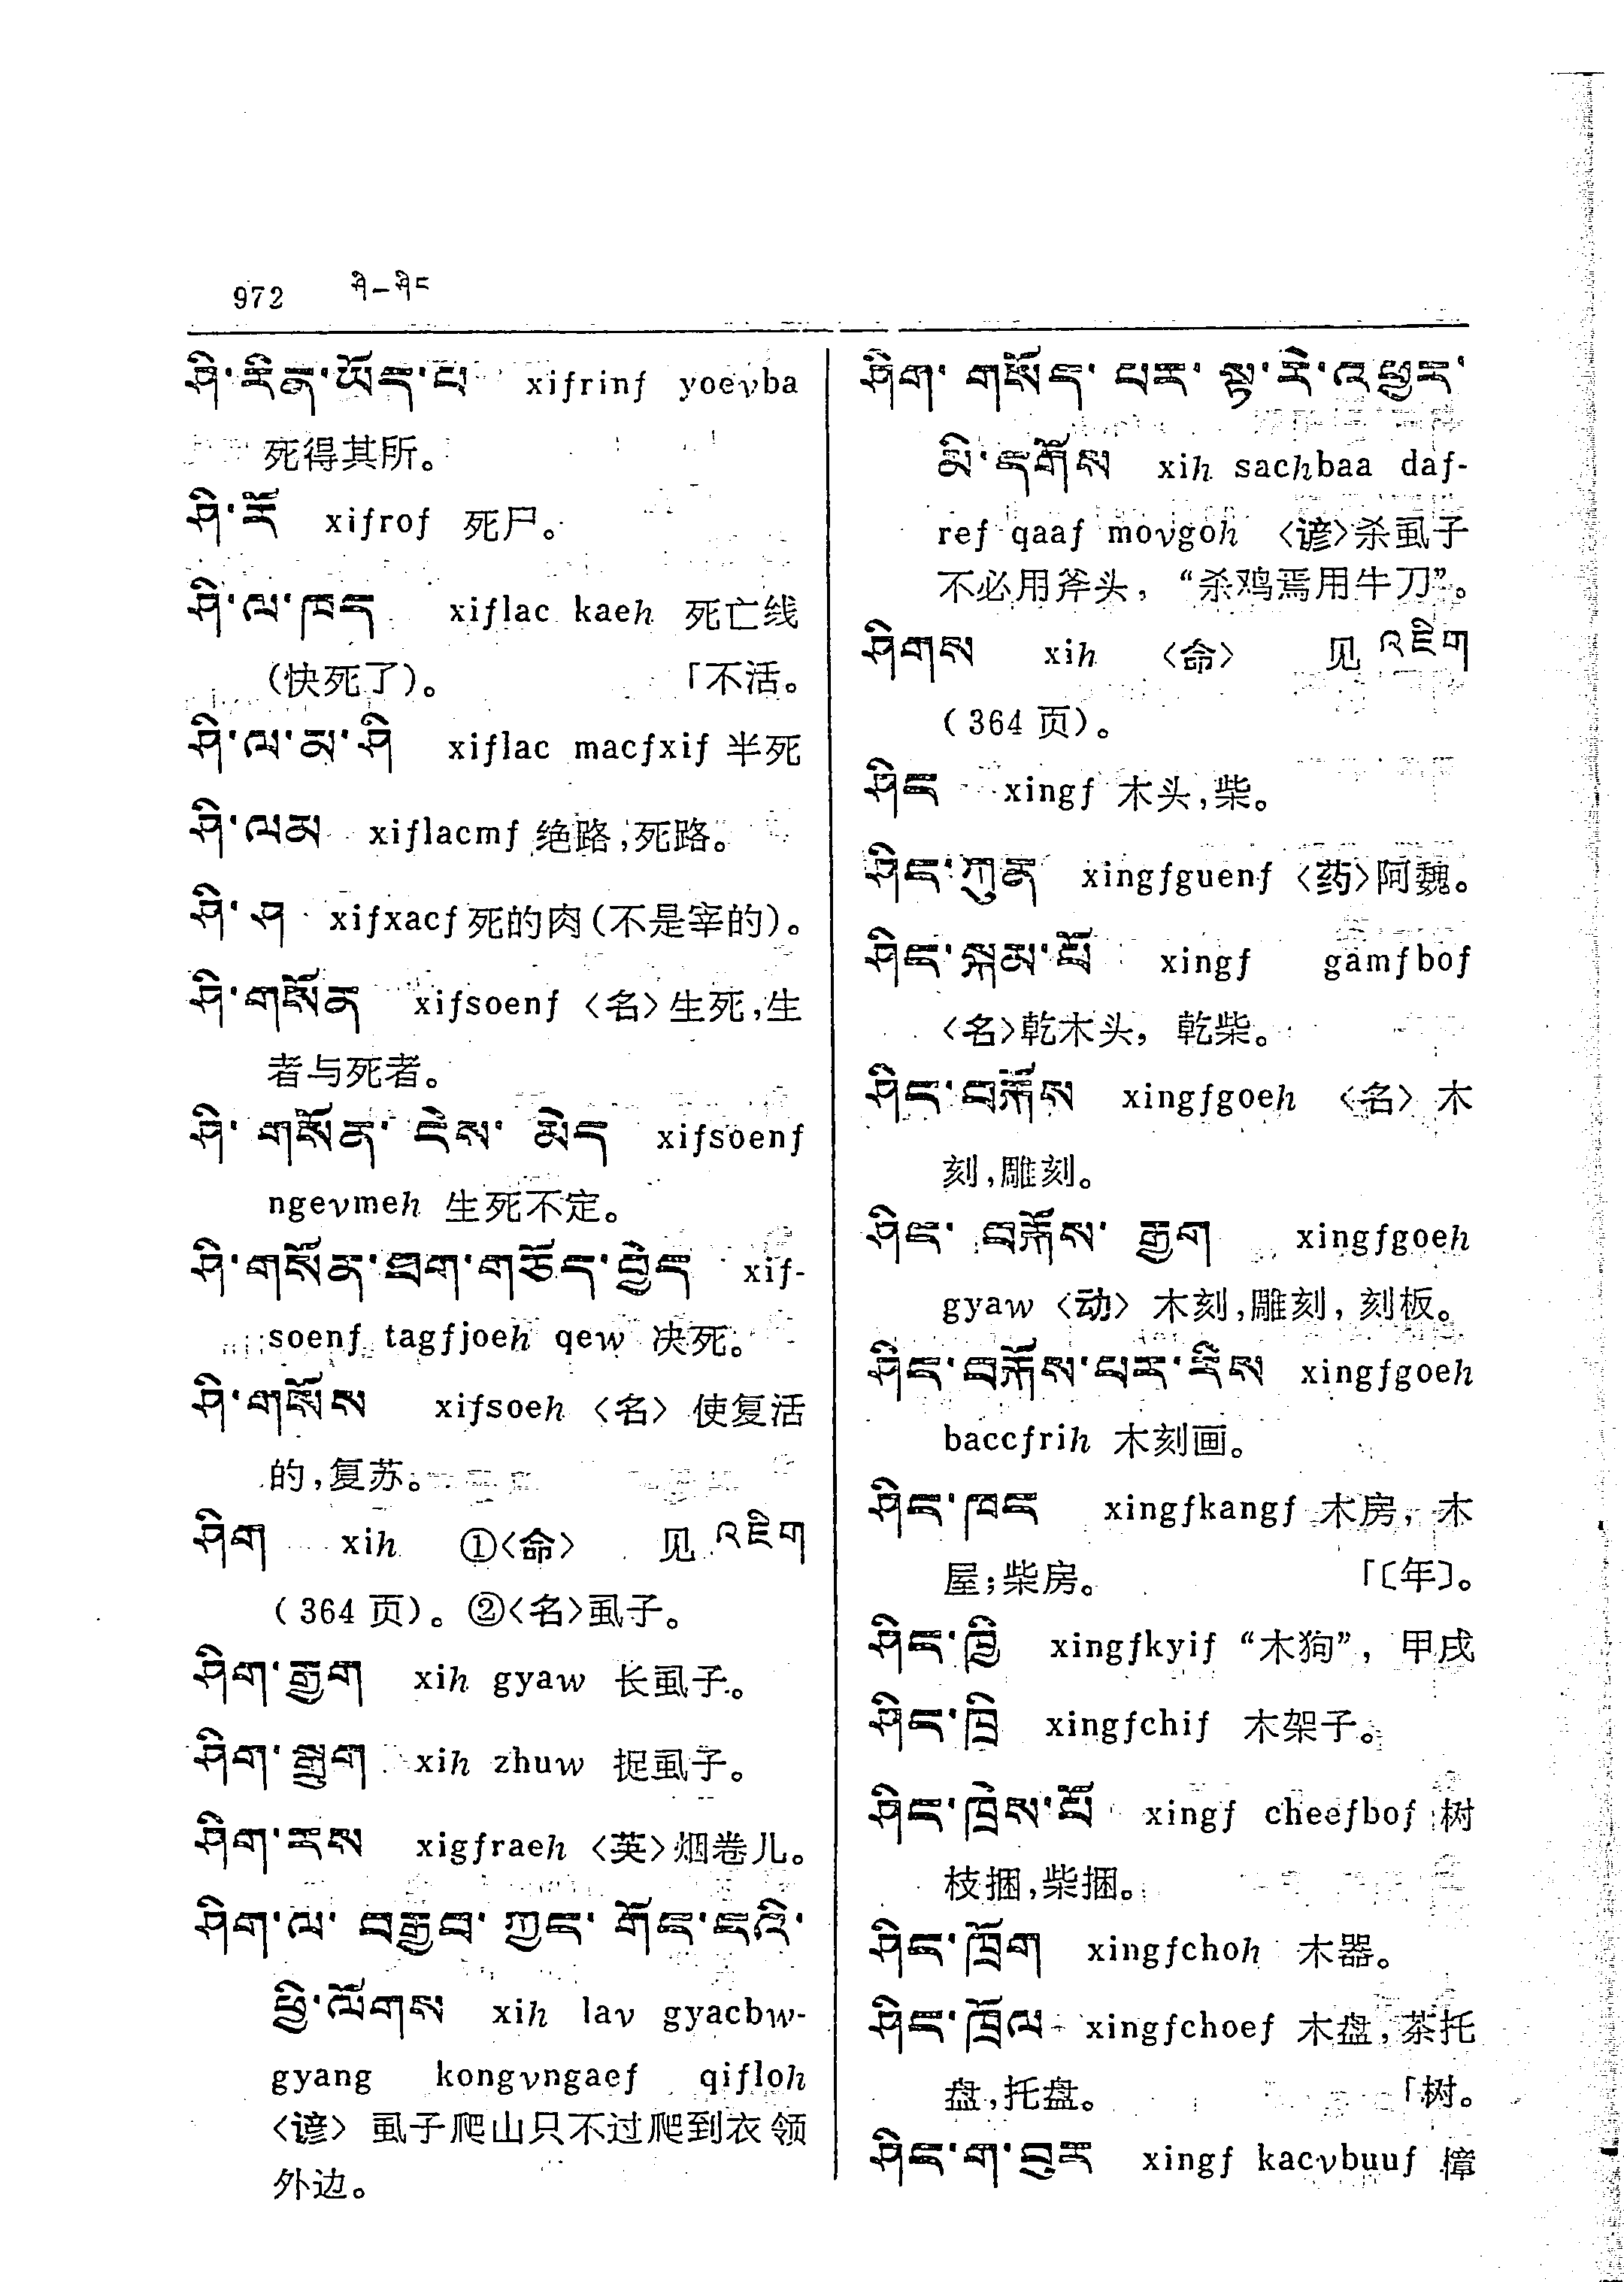 972 ཤི—ཤིང
ཤི་རིན་ཡོད་པ xiƒrinƒ yoevba
死得其所。
ཤི་རོ xiƒroƒ 死尸。
ཤི་ལ་ཁད xiƒlac kaeh 死亡线
(快死了)。 「不活。
ཤི་ལ་མ་ཤི xiƒlac macƒxiƒ 半死
ཤི་ལམ xiƒlacmƒ 绝路,死路。
ཤི་ཤ xiƒxacƒ 死的肉(不是宰的)。
ཤི་གསོན xiƒsoenƒ 〈名〉生死,生
者与死者。
ཤི་གསོན་ངེས་མེད xiƒsoenƒ
ngevmeh 生死不定。
ཤི་གསོན་ཐག་གཅོད་བྱེད xiƒ-
soenƒ tagƒjoeh qew 决死。
ཤི་གསོས xiƒsoeh 〈名〉 使复活
的,复苏。
ཤིག xih ①〈命〉 见 འཇིག
(364 页)。②〈名〉虱子。
ཤིག་རྒྱག xih gyaw 长虱子。
ཤིག་སྒྲུག xih zhuw 捉虱子。
ཤིག་རས xigƒraeh 〈英〉烟卷儿。
ཤིག་ལ་ བརྒྱབ་ ཀྱང་ གོང་ངའི་
ཕྱི་ལོགས xih lav gyacbw-
gyang kongvngaeƒ qiƒloh
〈谚〉 虱子爬山只不过爬到衣领
外边。
ཤིག་ གསོད་ པར་ སྟ་རེ་འཕྱར་
མི་དགོས xih sachbaa daƒ-
reƒ qaaƒ movgoh 〈谚〉杀虱子
不必用斧头, “杀鸡焉用牛刀”。
ཤིགས xih 〈命〉 见 འཇིག
(364 页)。
ཤིང xingƒ 木头,柴。
ཤིང་ཀུན xingƒguenƒ 〈药〉阿魏。
ཤིང་སྐམ་པོ xingƒ gamƒboƒ
〈名〉乾木头, 乾柴。
ཤིང་བརྐོས xingƒgoeh 〈名〉 木
刻,雕刻。
ཤིང་ བརྐོས་ རྒྱག xingƒgoeh
gyaw 〈动〉 木刻,雕刻, 刻板。
ཤིང་བརྐོས་པར་རིས xingƒgoeh
baccƒrih 木刻画。
ཤིང་ཁང xingƒkangƒ 木房, 木
屋;柴房。 「〔年〕。
ཤིང་ཁྱི xingƒkyiƒ “木狗”, 甲戌
ཤིང་ཁྲི xingƒchiƒ 木架子。
ཤིང་ཁྲེས་པོ xingƒ cheeƒboƒ 树
枝捆,柴捆。
ཤིང་ཁྲོག xingƒchoh 木器。
ཤིང་ཁྲོལ xingƒchoeƒ 木盘,茶托
盘,托盘。 「树。
ཤིང་ག་བུར xingƒ kacvbuuƒ 樟